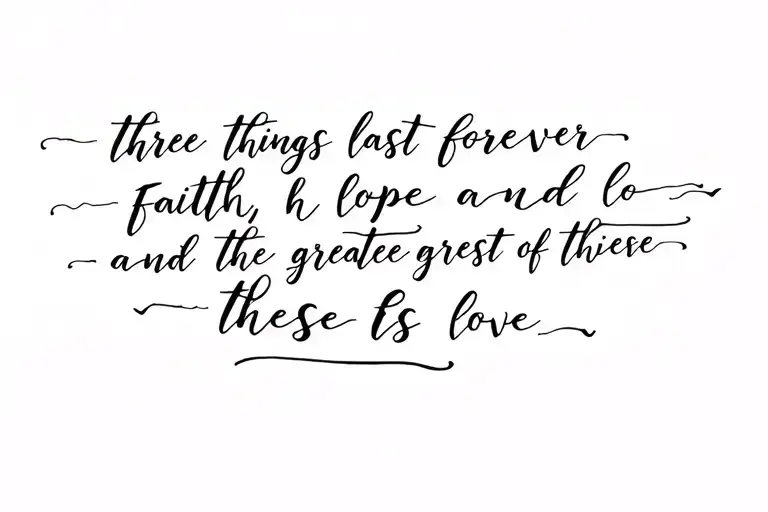 three things last forever
Faith, h lope and lo
and the greatee grest of thiese
these Is love